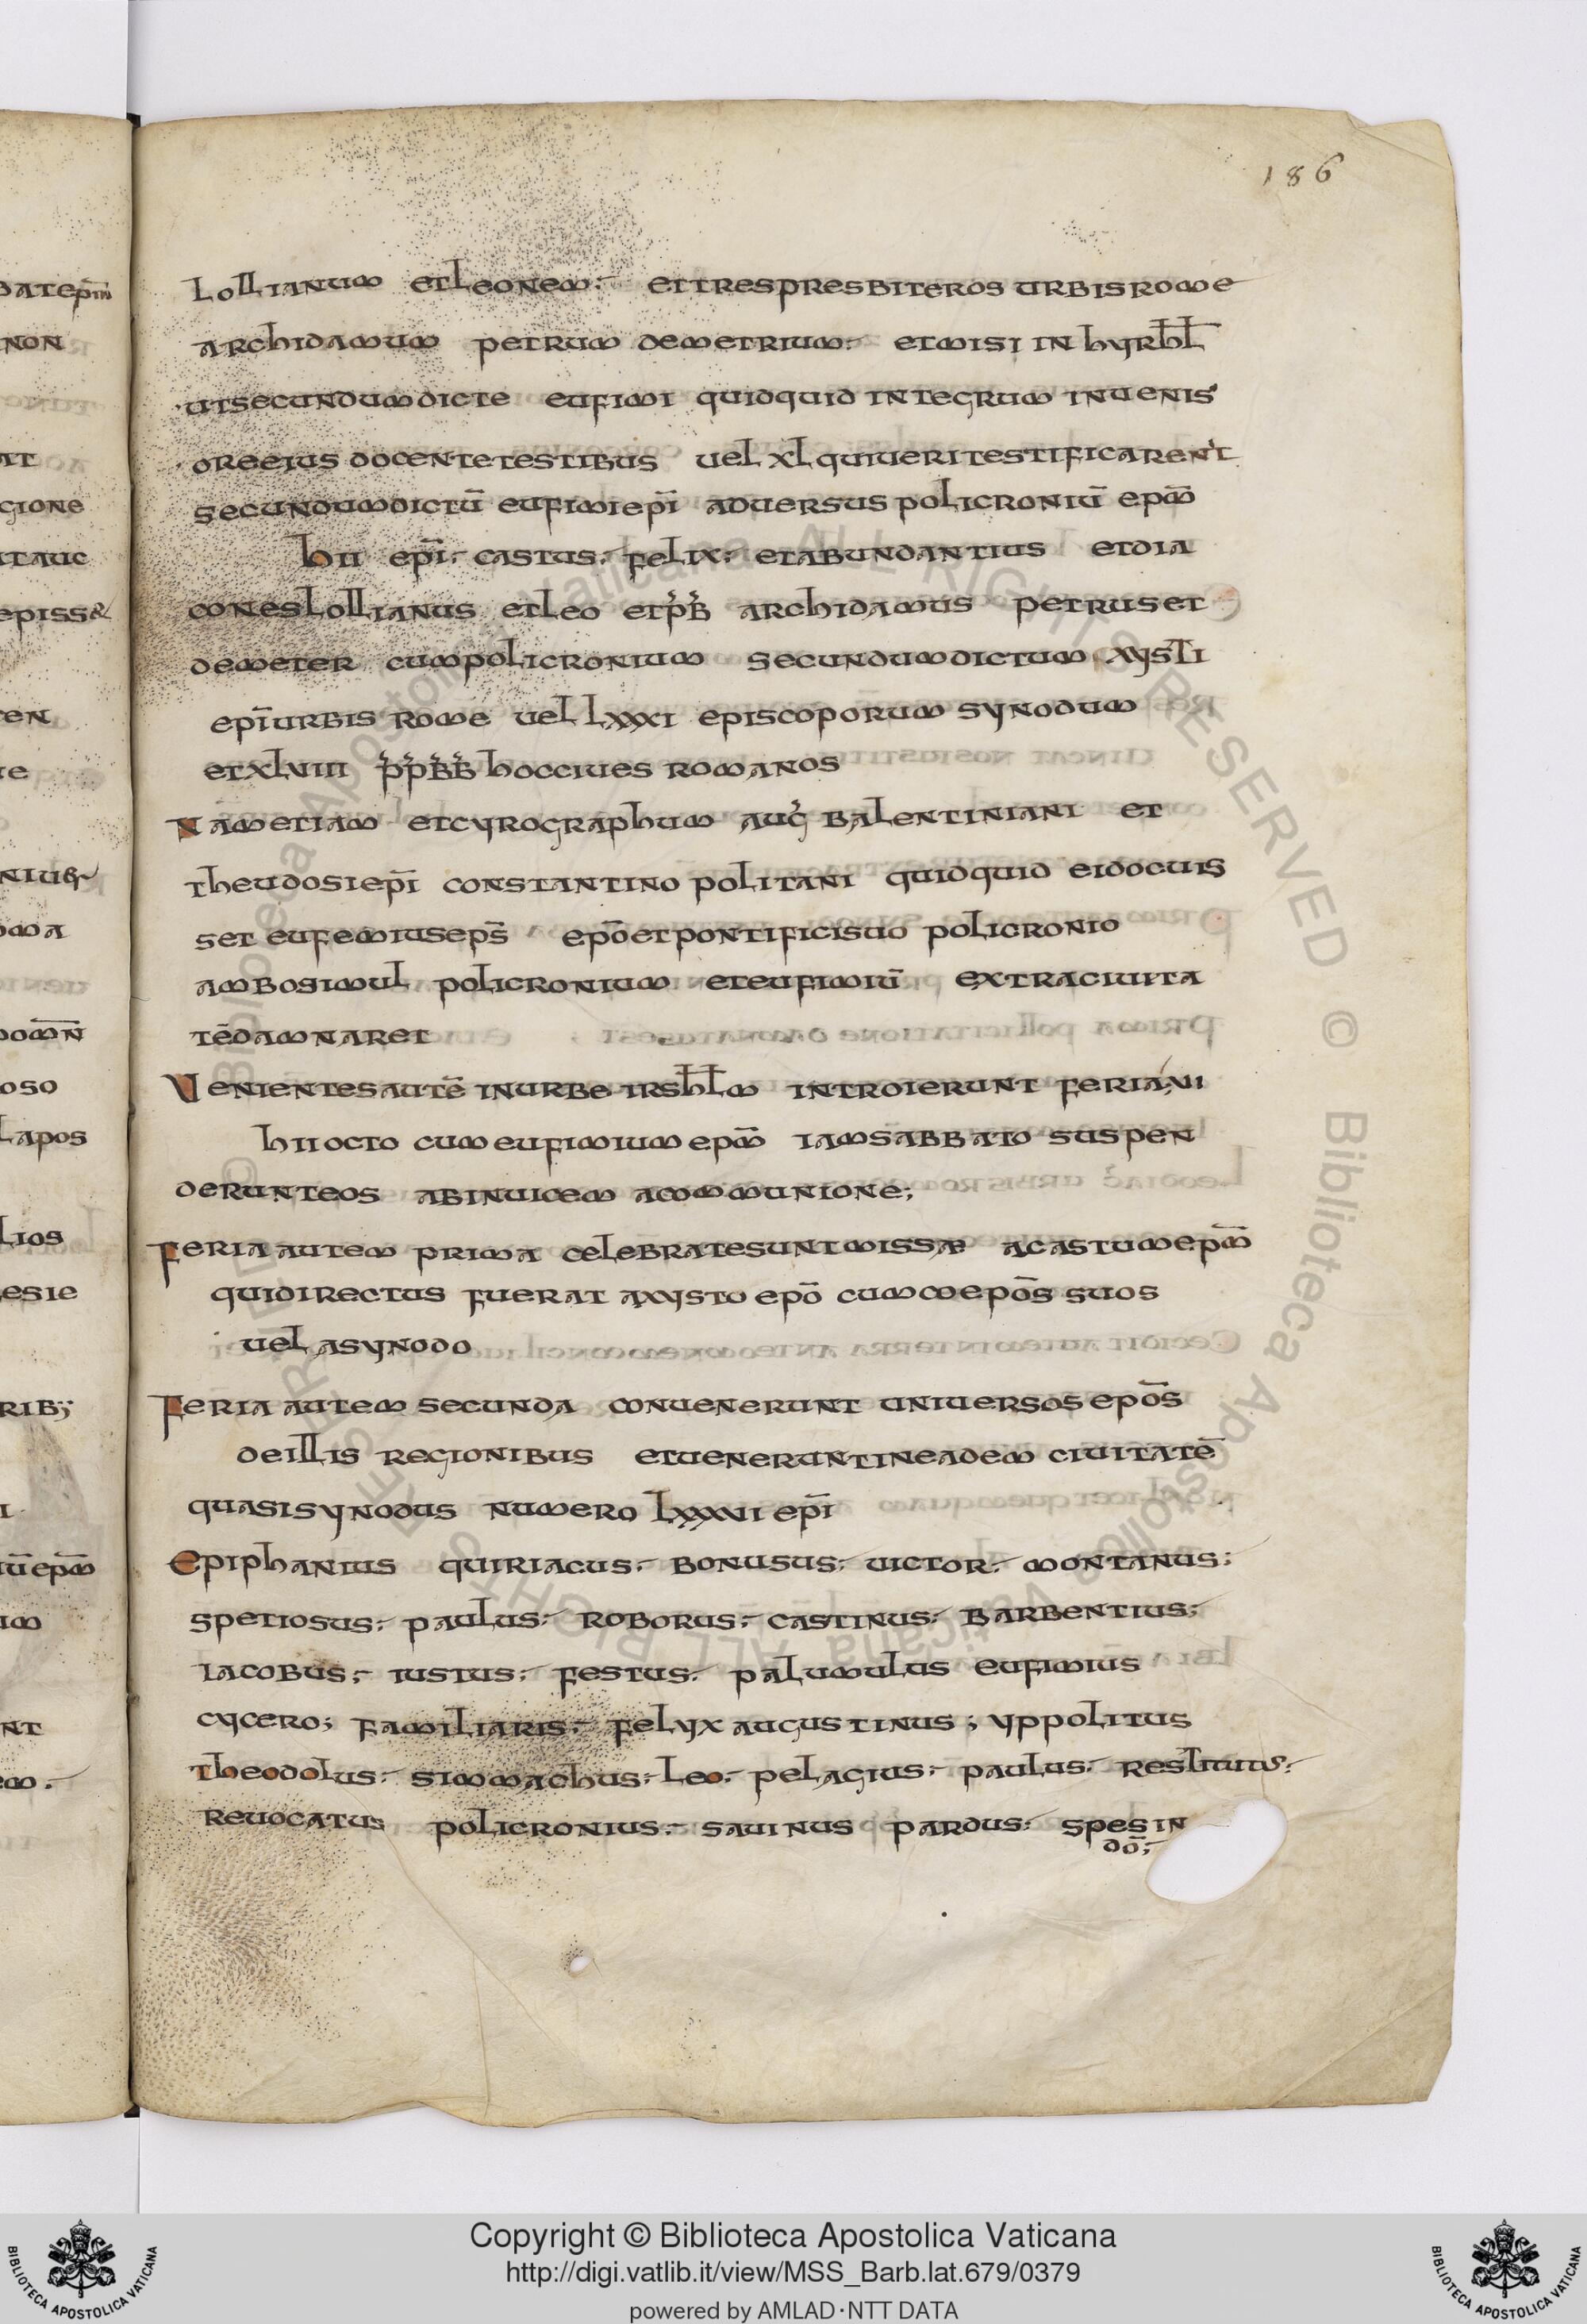 186
Lollianum et leonem; et tres presbiteros urbis rome
archidamum petrum demetrium; et misi in hyrhl̄
ut secundum dicte eufimi quidquid integrum inuenis
ore eius docente testibus uel xl qui ueri testificarent
secundum dictū eufimi ep̄i aduersus policroniū epm̄
hii ep̄i; castus; felix; et abundantius et dia
cones lollianus et leo et pb archidamus petrus et
demeter cum policronium secundum dictum xysti
ep̄i urbis rome uel lxxxi episcoporum synodum
et xlviii ppbb hoc ciues romanos
Nam etiam et cyrographum aug balentiniani et
theudosi ep̄i constantinopolitani quidquid ei docuis
set eufemius eps̄ epō et pontifici suo policronio
ambo simul policronium et eufimiū extra ciuita
tē damnaret
Uenientes autē in urbe irshl̄m introierunt feria, ui
hii octo cum eufimium epm̄ iam sabbato suspen
derunt eos abinuicem a communione;
Feria autem prima celebrate sunt missae a castum epm̄
qui directus fuerat a xysto epō cum coepōs suos
uel a synodo
Feria autem secunda conuenerunt uniuersos epōs
de illis regionibus et uenerunt in eadem ciuitatē
quasi synodus numero lxxxvi ep̄i
Epiphanius quiriacus; bonusus; uictor; montanus;
spetiosus; paulus; roborus; castinus; barbentius;
iacobus; iustus; festus; palumulus eufimius
cycero; familiaris; felyx augustinus; yppolitus
theodolus; simmachus; leo; pelagius; paulus; restitutus;
reuocatus policronius; sauinus pardus; spes in
dō;
Copyright © Biblioteca Apostolica Vaticana
http://digi.vatlib.it/view/MSS_Barb.lat.679/0379
powered by AMLAD·NTT DATA